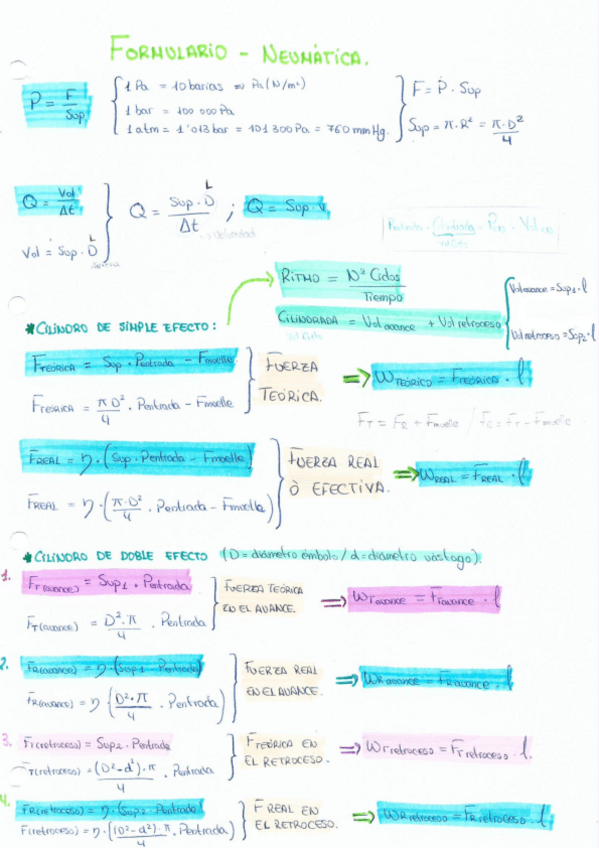 FORMULARIO - NEUMÁTICA.
P = F / Sup.
1 Pa = 10 barias => Pa (N/m²)
1 bar = 100 000 Pa
1 atm = 1'013 bar = 101 300 Pa = 760 mm Hg.
F = P · Sup
Sup = π·R² = π·D² / 4
Q = Vol / Δt
Vol = Sup · D L
Q = Sup · D L / Δt ; Q = Sup · v
RITMO = Nº Ciclos / Tiempo
CILINDRADA = Vol avance + Vol retroceso
Vol avance = Sup1 · l
Vol retroceso = Sup2 · l
* CILINDRO DE SIMPLE EFECTO:
FTEÓRICA = Sup · Pentrada - Fmuelle
FTEÓRICA = π D² / 4 · Pentrada - Fmuelle
FUERZA TEÓRICA.
=> WTEÓRICO = FTEÓRICA · l
FT = FR + Fmuelle / FR = FT - Fmuelle
FREAL = η · (Sup · Pentrada - Fmuelle)
FREAL = η · (π·D² / 4 · Pentrada - Fmuelle)
FUERZA REAL Ò EFECTIVA.
=> WREAL = FREAL · l
* CILINDRO DE DOBLE EFECTO (D = diámetro émbolo / d = diámetro vástago).
1. FT(avance) = Sup1 · Pentrada
FT(avance) = D²·π / 4 · Pentrada
FUERZA TEÓRICA EN EL AVANCE.
=> WTavance = FTavance · l
2. FR(avance) = η · (Sup1 · Pentrada)
FR(avance) = η (D²·π / 4 · Pentrada)
FUERZA REAL EN EL AVANCE.
=> WRavance = FRavance · l
3. FT(retroceso) = Sup2 · Pentrada
FT(retroceso) = (D²-d²)·π / 4 · Pentrada
F TEÓRICA EN EL RETROCESO.
=> WTretroceso = FTretroceso · l.
4. FR(retroceso) = η · (Sup2 · Pentrada)
F(retroceso) = η · ((D²-d²)·π / 4 · Pentrada)
F REAL EN EL RETROCESO.
=> WRretroceso = FRretroceso · l